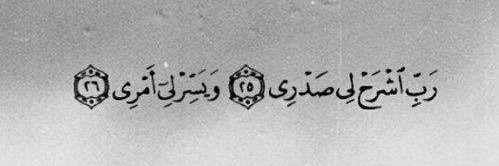 رَبِّ ٱشۡرَحۡ لِي صَدۡرِي ٢٥ وَيَسِّرۡ لِيٓ أَمۡرِي ٢٦